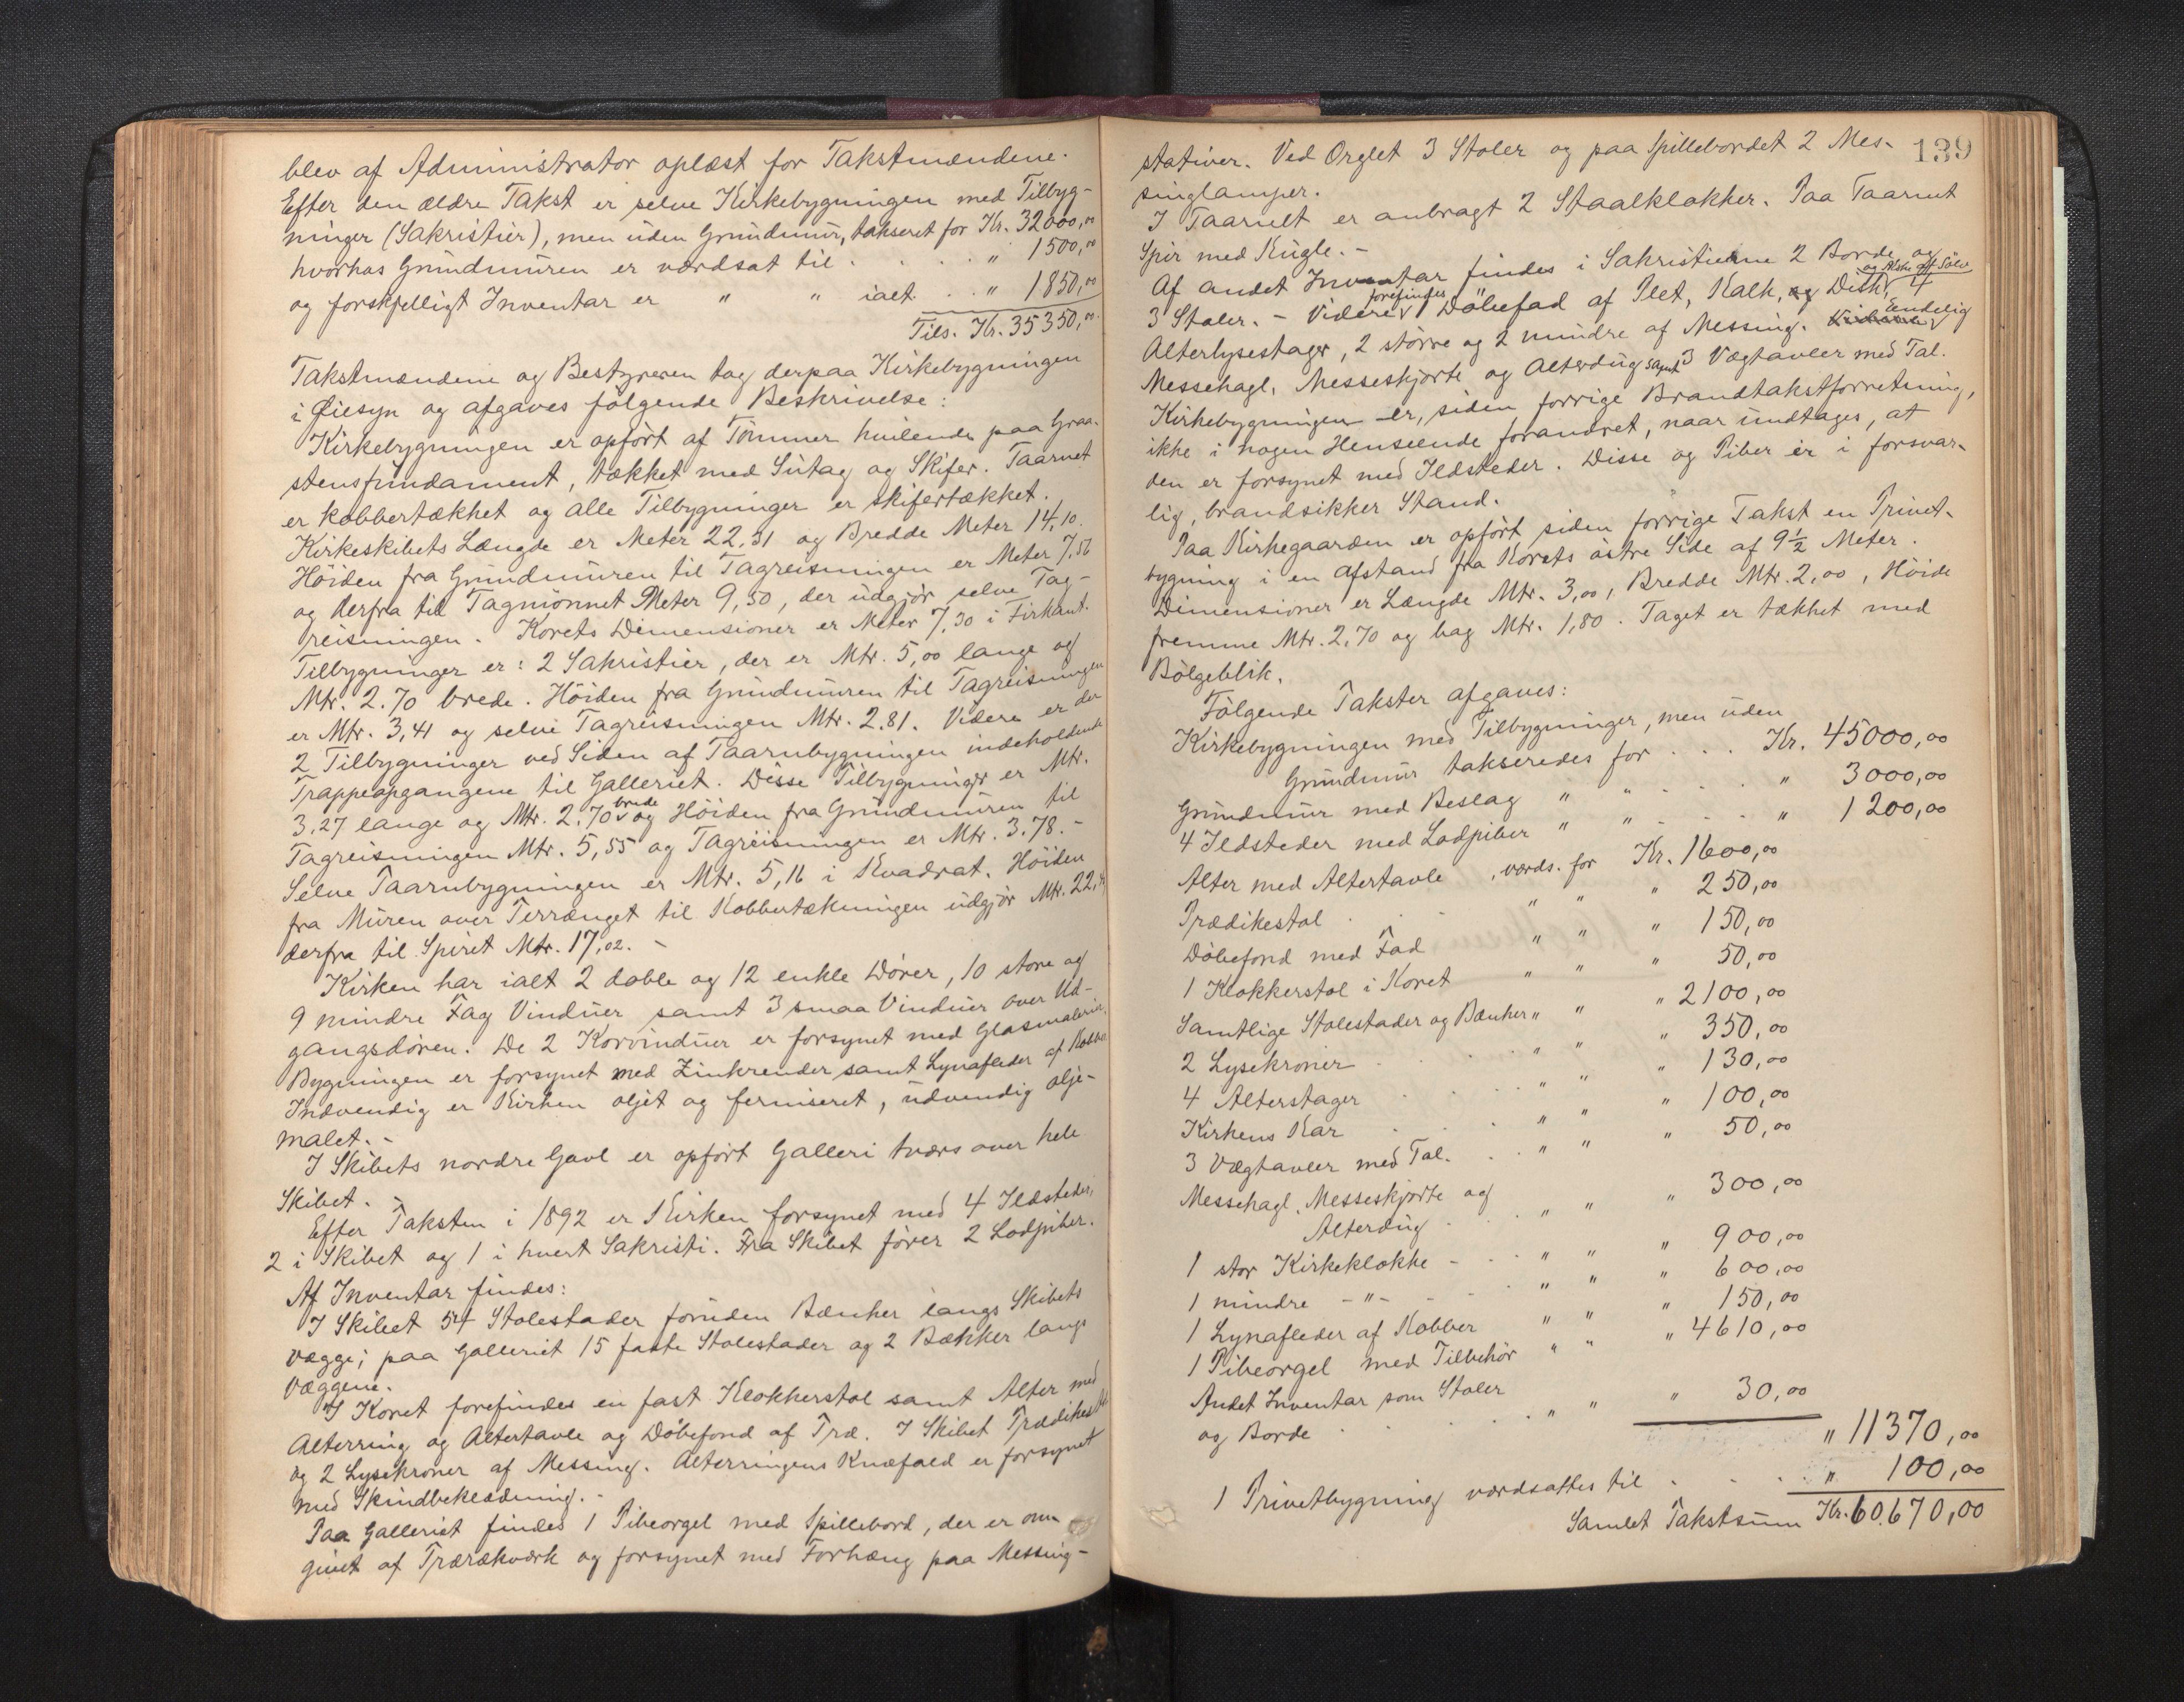 blev af Administrator oplæst for Takstmændene.
Efter den ældre Takst er selve Kirkebygningen med Tilbyg-
ninger (Sakristier), men uden Grundmur, takseret for Kr. 32000,00
hvorhos Grundmuren er værdsat til . . . . " 1500,00
og forskjelligt Inventar er " " ialt . . " 1850,00
Tils. Kr. 35350,00.
Takstmændene og Bestyreren tog derpaa Kirkebygningen
i Øiesyn og afgaves følgende Beskrivelse:
Kirkebygningen er opført af Tømmer hvilende paa Graa-
stensfundament, tækket med Sutag og Skifer. Taarnet
er kobbertækket og alle Tilbygninger er skifertækket.
Kirkeskibets Længde er Meter 22,31 og Bredde Meter 14,10.
Høiden fra Grundmuren til Tagreisningen er Meter 7,56
og derfra til Tagmønnet Meter 9,50, der udgjør selve Tag-
reisningen. Korets Dimensioner er Meter 7,30 i Firkant.
Tilbygninger er: 2 Sakristier, der er Mtr. 5,00 lange og
Mtr. 2.70 brede. Høiden fra Grundmuren til Tagreisningen
er Mtr. 3,41 og selve Tagreisningen Mtr. 2.81. Videre er der
2 Tilbygninger ved Siden af Taarnbygningen indeholdende
Trappeopgangene til Galleriet. Disse Tilbygninger er Mtr.
3,27 lange og Mtr. 2.70 brede og Høiden fra Grundmuren til
Tagreisningen Mtr. 5,55 og Tagreisningen er Mtr. 3.78.-
Selve Taarnbygningen er Mtr. 5,16 i Kvadrat. Høiden
fra Muren over Terrænget til Kobbertækningen udgjør Mtr. 22,
derfra til Spiret Mtr. 17,02. -
Kirken har ialt 2 doble og 12 enkle Dører, 10 store og
9 mindre Fag Vinduer samt 3 smaa Vinduer over Ud-
gangsdøren. De 2 Korvinduer er forsynet med Glasmalerier.
Bygningen er forsynet med Zinkrender samt Lynafleder af Kobber
Indvendig er Kirken oljet og ferniseret, udvendig olje-
malet. -
I Skibets nordre Gavl er opført Galleri tværs over hele
Skibet.
Efter Taksten i 1892 er Kirken forsynet med 4 Ildsteder,
2 i Skibet og 1 i hvert Sakristi. Fra Skibet fører 2 Lodpiber.
Af Inventar findes:
I Skibet 54 Stolestader foruden Bænker langs Skibets
Vægge; paa Galleriet 15 faste Stolestader og 2 Bækker langs
Væggene.
I Koret forefindes en fast Klokkerstol samt Alter med
Alterring og Altertavle og Døbefond af Træ. I Skibet Prædikestol
og 2 Lysekroner af Messing. Alterringens Knæfald er forsynet
med Skindbeklædning. -
Paa Galleriet findes 1 Pibeorgel med Spillebord, der er om-
givet af Trærækværk og forsynet med Forhæng paa Messing-
139
stativer. Ved Orglet 3 Stoler og paa Spillebordet 2 Mes-
singlamper.
I Taarnet er anbragt 2 Staalklokker. Paa Taarnet
Spir med Kugle. -
Af andet Inventar findes i Sakristierne 2 Borde og
3 Stoler. - Videre forefindes 1 Døbefad af Plet, Kalk, og Disk og Æske af Sølv, 4
Alterlysestager, 2 større og 2 mindre af Messing. Endelig
Messehagl, Messeskjorte og Alterdug samt 3 Vægtavler med Tal.
Kirkebygningen er, siden forrige Brandtakstforretning,
ikke i nogen Henseende forandret, naar undtages, at
den er forsynet med Ildsteder. Disse og Piber er i forsvar-
lig, brandsikker Stand.
Paa Kirkegaarden er opført siden forrige Takst en Privet-
bygning i en Afstand fra Korets østre Side af 9½ Meter.
Dimensioner er Længde Mtr. 3,00, Bredde Mtr. 2,00, Høide
fremme Mtr. 2.70 og bag Mtr. 1,80. Taget er tækket med
Bølgeblik.
Følgende Takster afgaves:
Kirkebygningen med Tilbygninger, men uden
Grundmur takseredes for . . . Kr. 45000,00
Grundmur med Beslag " " . . . " 3000,00
4 Ildsteder med Lodpiber " " . . . " 1200,00
Alter med Altertavle , værds. for Kr. 1600,00
Prædikestol . . " " " 250,00
Døbefond med Fad " " " 150,00
1 Klokkerstol i Koret " " " 50,00
Samtlige Stolestader og Bænker " " " 2100,00
2 Lysekroner . . . " " " 350,00
4 Alterstager . . . " " " 130,00
Kirkens Kar . . . " " " 100,00
3 Vægtavler med Tal. . . " " " 50,00
Messehagl, Messeskjorte og
Alterdug . . . " " " 300,00
1 stor Kirkeklokke - . . " " " 900,00
1 mindre - " - - . " " " 600,00
1 Lynafleder af Kobber " " " 150,00
1 Pibeorgel med Tilbehør " " " 4610,00
Andet Inventar som Stoler
og Borde . . . . " " " 30,00
" 11370,00
1 Privetbygning værdsattes til . . . . " 100,00
Samlet Takstsum Kr. 60.670,00